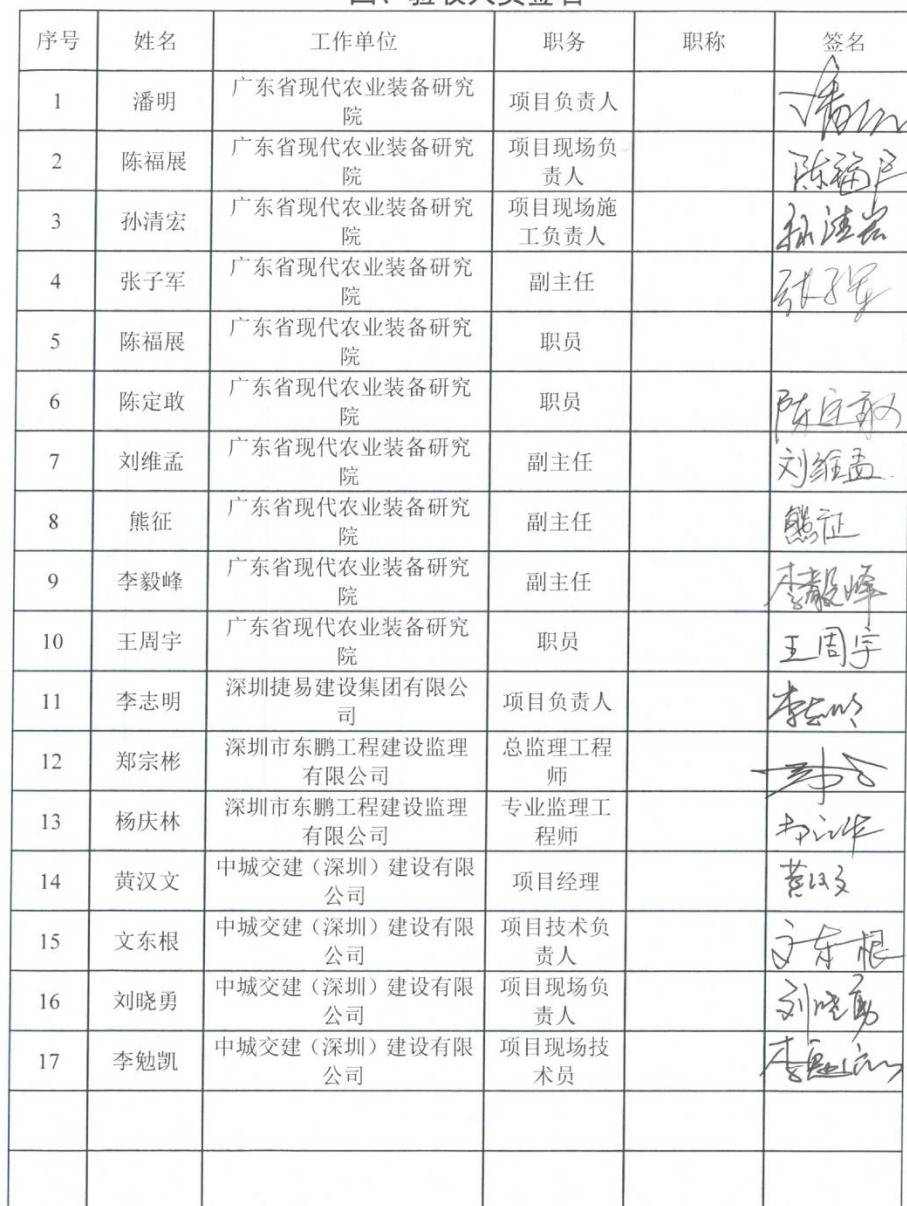 四、验收人员签名
序号 姓名 工作单位 职务 职称 签名
1 潘明 广东省现代农业装备研究院 项目负责人 潘明
2 陈福展 广东省现代农业装备研究院 项目现场负责人 陈福展
3 孙清宏 广东省现代农业装备研究院 项目现场施工负责人 孙清宏
4 张子军 广东省现代农业装备研究院 副主任 张子军
5 陈福展 广东省现代农业装备研究院 职员
6 陈定敢 广东省现代农业装备研究院 职员 陈定敢
7 刘维孟 广东省现代农业装备研究院 副主任 刘维孟
8 熊征 广东省现代农业装备研究院 副主任 熊征
9 李毅峰 广东省现代农业装备研究院 副主任 李毅峰
10 王周宇 广东省现代农业装备研究院 职员 王周宇
11 李志明 深圳捷易建设集团有限公司 项目负责人 李志明
12 郑宗彬 深圳市东鹏工程建设监理有限公司 总监理工程师
13 杨庆林 深圳市东鹏工程建设监理有限公司 专业监理工程师
14 黄汉文 中城交建（深圳）建设有限公司 项目经理 黄汉文
15 文东根 中城交建（深圳）建设有限公司 项目技术负责人 文东根
16 刘晓勇 中城交建（深圳）建设有限公司 项目现场负责人 刘晓勇
17 李勉凯 中城交建（深圳）建设有限公司 项目现场技术员 李勉凯